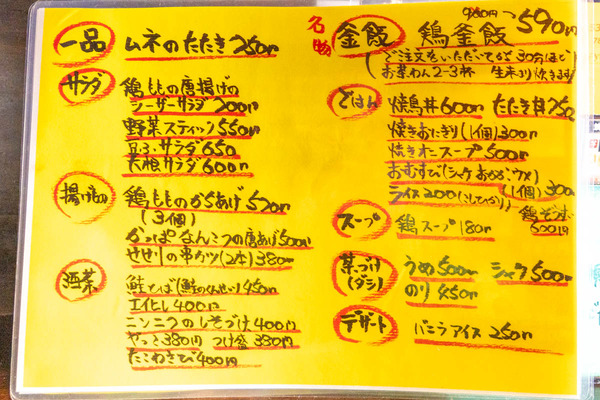 一品 ムネのたたき 250円
サラダ 鶏ももの唐揚げの
シーザーサラダ 700円
野菜スティック 550円
豆ふサラダ 650
大根サラダ 600円
揚げもの 鶏もものからあげ 520円
(3個)
かっぱなんこつの唐あげ 500円
せせりの串カツ(2本) 380円
酒菜 鮭とば(鮭のくんせい) 450円
エイヒレ 400円
ニンニクのしそづけ 400円
やっこ 380円 つけ盛 330円
たこわさび 400円
名物 釜飯 鶏釜飯 590円
(ご注文をいただいてから30分ほど
お茶わん2~3杯 生米より炊きます)
ごはん 焼鳥丼 600円 たたき丼 750
焼きおにぎり(1個) 300円
焼きオニスープ 500円
おむすび(シャケ おかか ウメ)
(1個) 300
ライス 200
鶏ぞうすい
500円
スープ 鶏スープ 180円
茶づけ うめ 500円 シャケ 500円
(ダシ) のり 450円
デザート バニラアイス 250円